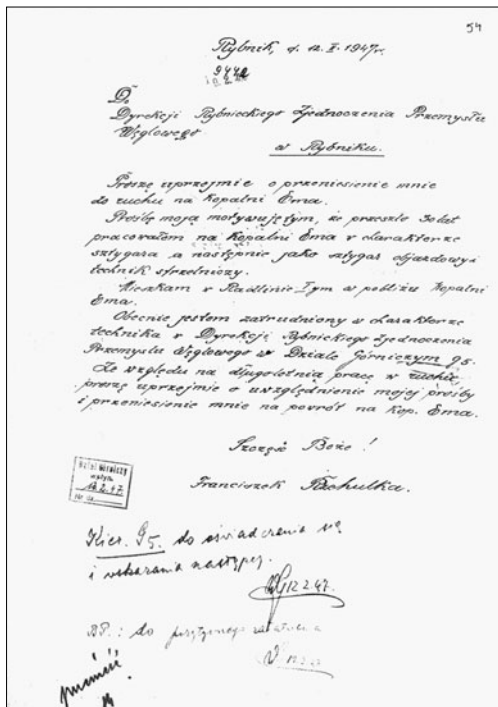 54
Rybnik, d. 12. II. 1947r.
D.
Dyrekcji Rybnickiego Zjednoczenia Przemysłu
Węglowego
w Rybniku.
Proszę uprzejmie o przeniesienie mnie
do ruchu na kopalni Ema.
Prośbę moją motywuję tym, że przeszło 30 lat
pracowałem na kopalni Ema w charakterze
sztygara a następnie jako sztygar objazdowy i
technik strzelniczy.
Mieszkam w Radlinie I-ym w pobliżu kopalni
Ema.
Obecnie jestem zatrudniony w charakterze
technika w Dyrekcji Rybnickiego Zjednoczenia
Przemysłu Węglowego w Dziale Górniczym G5.
Ze względu na długoletnią pracę w ruchu,
proszę uprzejmie o uwzględnienie mojej prośby
i przeniesienie mnie na powrót na kop. Ema.
Szczęść Boże!
Franciszek
Dział Górniczy
12.2.47.
Kier. G5. do oświadczenia się
i wskazania następcy.
12 2.47.
do